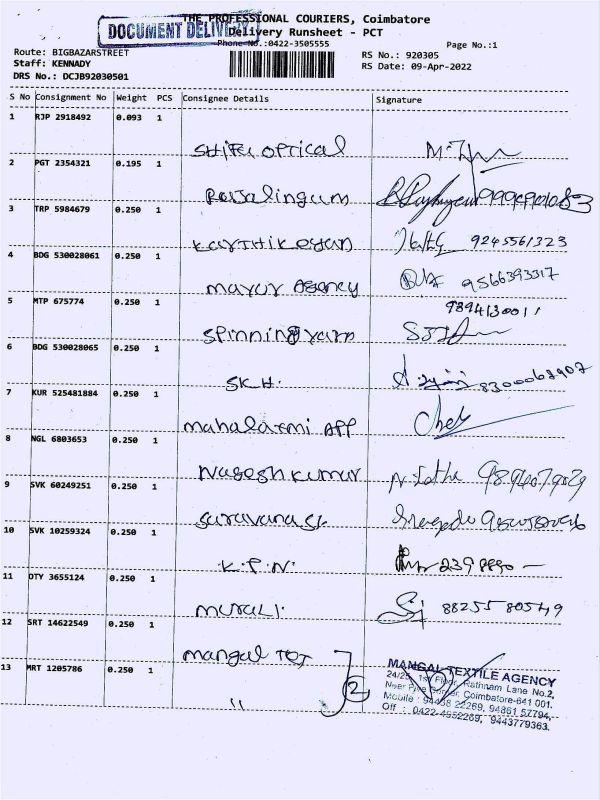 THE PROFESSIONAL COURIERS, Coimbatore
DOCUMENT DELIVERY
Delivery Runsheet - PCT
Phone No.:0422-3505555
Page No.:1
Route: BIGBAZARSTREET
RS No.: 920305
Staff: KENNADY
RS Date: 09-Apr-2022
DRS No.: DCJB92030501
S No Consignment No Weight PCS Consignee Details Signature
1 RJP 2918492 0.093 1
Shifu optical
2 PGT 2354321 0.195 1
Rajalingum
3 TRP 5984679 0.250 1
Karthikeyan 9245561323
4 BDG 530028061 0.250 1
Mayur Agency 9566393317
5 MTP 675774 0.250 1
9894130011
Spinning yarn
6 BDG 530028065 0.250 1
S.K.H. 8300068907
7 KUR 525481884 0.250 1
mahalaxmi APP
8 NGL 6803653 0.250 1
Nagesh Kumar N. Latha
9 SVK 60249251 0.250 1
Saravana St.
10 SVK 10259324 0.250 1
K.P.N. 2398890
11 OTY 3655124 0.250 1
Murali. 88255 80549
12 SRT 14622549 0.250 1
mangal Tex
13 MRT 1205786 0.250 1
" 2
MANGAL TEXTILE AGENCY
24/25, 1st Floor, Rathnam Lane No.2,
Near Five Corner, Coimbatore-641 001.
Mobile : 94438 22269, 94861 57794,
Off : 0422-4952269, 9443779363.